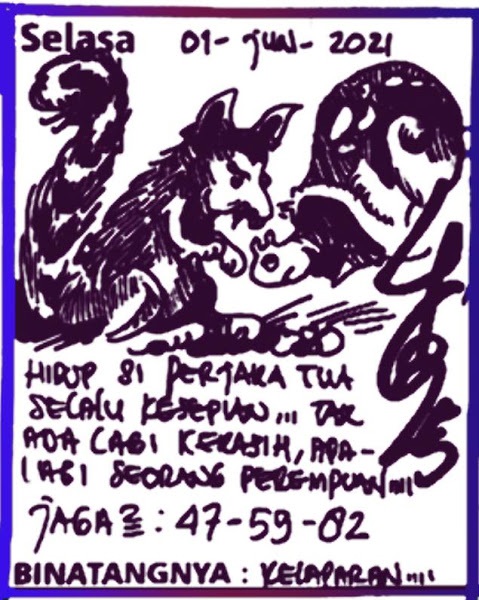 Selasa 01-JUN-2021
HIDUP SI PERJAKA TUA
SELALU KESEPIAN,,, TAK
ADA LAGI KEKASIH, APA-
LAGI SEORANG PEREMPUAN,,,,
JAGA2 : 47-59-02
BINATANGNYA : KELAPARAN,,,,